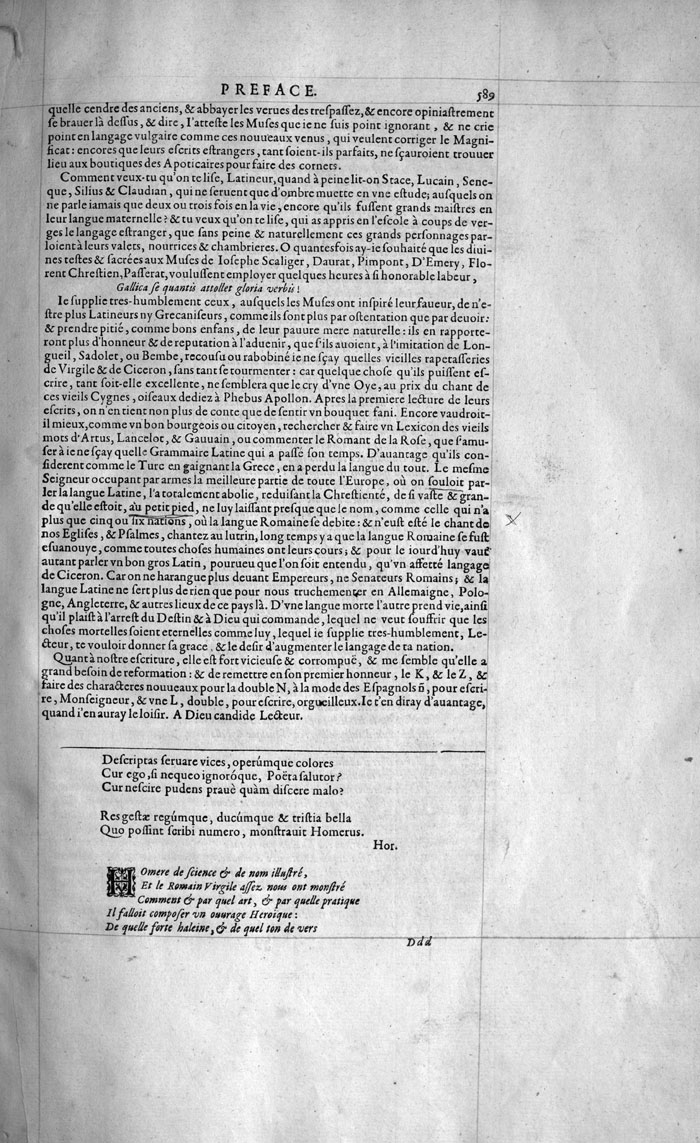 PREFACE. 589
quelle cendre des anciens, & abbayer les verues des treſpaſſez, & encore opiniaſtrement
ſe brauer là deſſus, & dire, I'atteſte les Muſes que ie ne ſuis point ignorant, & ne crie
point en langage vulgaire comme ces nouueaux venus, qui veulent corriger le Magni-
ficat: encores que leurs eſcrits eſtrangers, tant ſoient-ils parfaits, ne ſçauroient trouuer
lieu aux boutiques des Apoticaires pour faire des cornets.
Comment veux-tu qu'on te liſe, Latineur, quand à peine lit-on Stace, Lucain, Sene-
que, Silius & Claudian, qui ne ſeruent que d'ombre muette en vne eſtude; auſquels on
ne parle iamais que deux ou trois fois en la vie, encore qu'ils fuſſent grands maiſtres en
leur langue maternelle? & tu veux qu'on te liſe, qui as appris en l'eſcole à coups de ver-
ges le langage eſtranger, que ſans peine & naturellement ces grands perſonnages par-
loient à leurs valets, nourrices & chambrieres. O quantesfois ay-ie ſouhaité que les diui-
nes teſtes & ſacrées aux Muſes de Ioſephe Scaliger, Daurat, Pimpont, D'Emery, Flo-
rent Chreſtien, Paſſerat, vouluſſent employer quelques heures à ſi honorable labeur,
Gallica ſe quantis attollet gloria verbis!
Ie ſupplie tres-humblement ceux, auſquels les Muſes ont inſpiré leur faueur, de n'e-
ſtre plus Latineurs ny Grecaniſeurs, comme ils ſont plus par oſtentation que par deuoir:
& prendre pitié, comme bons enfans, de leur pauure mere naturelle: ils en rapporte-
ront plus d'honneur & de reputation à l'aduenir, que s'ils auoient, à l'imitation de Lon-
gueil, Sadolet, ou Bembe, recouſu ou rabobiné ie ne ſçay quelles vieilles rapetaſſeries
de Virgile & de Ciceron, ſans tant ſe tourmenter: car quelque choſe qu'ils puiſſent eſ-
crire, tant ſoit-elle excellente, ne ſemblera que le cry d'vne Oye, au prix du chant de
ces vieils Cygnes, oiſeaux dediez à Phebus Apollon. Apres la premiere lecture de leurs
eſcrits, on n'en tient non plus de conte que de ſentir vn bouquet fani. Encore vaudroit-
il mieux, comme vn bon bourgeois ou citoyen, rechercher & faire vn Lexicon des vieils
mots d'Artus, Lancelot, & Gauuain, ou commenter le Romant de la Roſe, que s'amu-
ſer à ie ne ſçay quelle Grammaire Latine qui a paſſé ſon temps. D'auantage qu'ils con-
ſiderent comme le Turc en gaignant la Grece, en a perdu la langue du tout. Le meſme
Seigneur occupant par armes la meilleure partie de toute l'Europe, où on ſouloit par-
ler la langue Latine, l'a totalement abolie, reduiſant la Chreſtienté, de ſi vaſte & gran-
de qu'elle eſtoit, au petit pied, ne luy laiſſant preſque que le nom, comme celle qui n'a
plus que cinq ou ſix nations, où la langue Romaine ſe debite: & n'euſt eſté le chant de
nos Egliſes, & Pſalmes, chantez au lutrin, long temps y a que la langue Romaine ſe fuſt
eſuanouye, comme toutes choſes humaines ont leurs cours; & pour le iourd'huy vaut
autant parler vn bon gros Latin, pourueu que l'on ſoit entendu, qu'vn affetté langage
de Ciceron. Car on ne harangue plus deuant Empereurs, ne Senateurs Romains; & la
langue Latine ne ſert plus de rien que pour nous truchementer en Allemaigne, Polo-
gne, Angleterre, & autres lieux de ce pays là. D'vne langue morte l'autre prend vie, ainſi
qu'il plaiſt à l'arreſt du Deſtin & à Dieu qui commande, lequel ne veut ſouffrir que les
choſes mortelles ſoient eternelles comme luy, lequel ie ſupplie tres-humblement, Le-
cteur, te vouloir donner ſa grace, & le deſir d'augmenter le langage de ta nation.
Quant à noſtre eſcriture, elle eſt fort vicieuſe & corrompuë, & me ſemble qu'elle a
grand beſoin de reformation: & de remettre en ſon premier honneur, le K, & le Z, &
faire des characteres nouueaux pour la double N, à la mode des Eſpagnols ñ, pour eſcri-
re, Monſeigneur, & vne L, double, pour eſcrire, orgueilleux. Ie t'en diray d'auantage,
quand i'en auray le loiſir. A Dieu candide Lecteur.
Deſcriptas ſeruare vices, operúmque colores
Cur ego, ſi nequeo ignoróque, Poëta ſalutor?
Cur neſcire pudens prauè quàm diſcere malo?
Res geſtæ regúmque, ducúmque & triſtia bella
Quo poſſint ſcribi numero, monſtrauit Homerus.
Hor.
HOmere de ſcience & de nom illuſtré,
Et le Romain Virgile aſſez nous ont monſtré
Comment & par quel art, & par quelle pratique
Il falloit compoſer vn ouurage Heroique:
De quelle forte haleine, & de quel ton de vers
Ddd